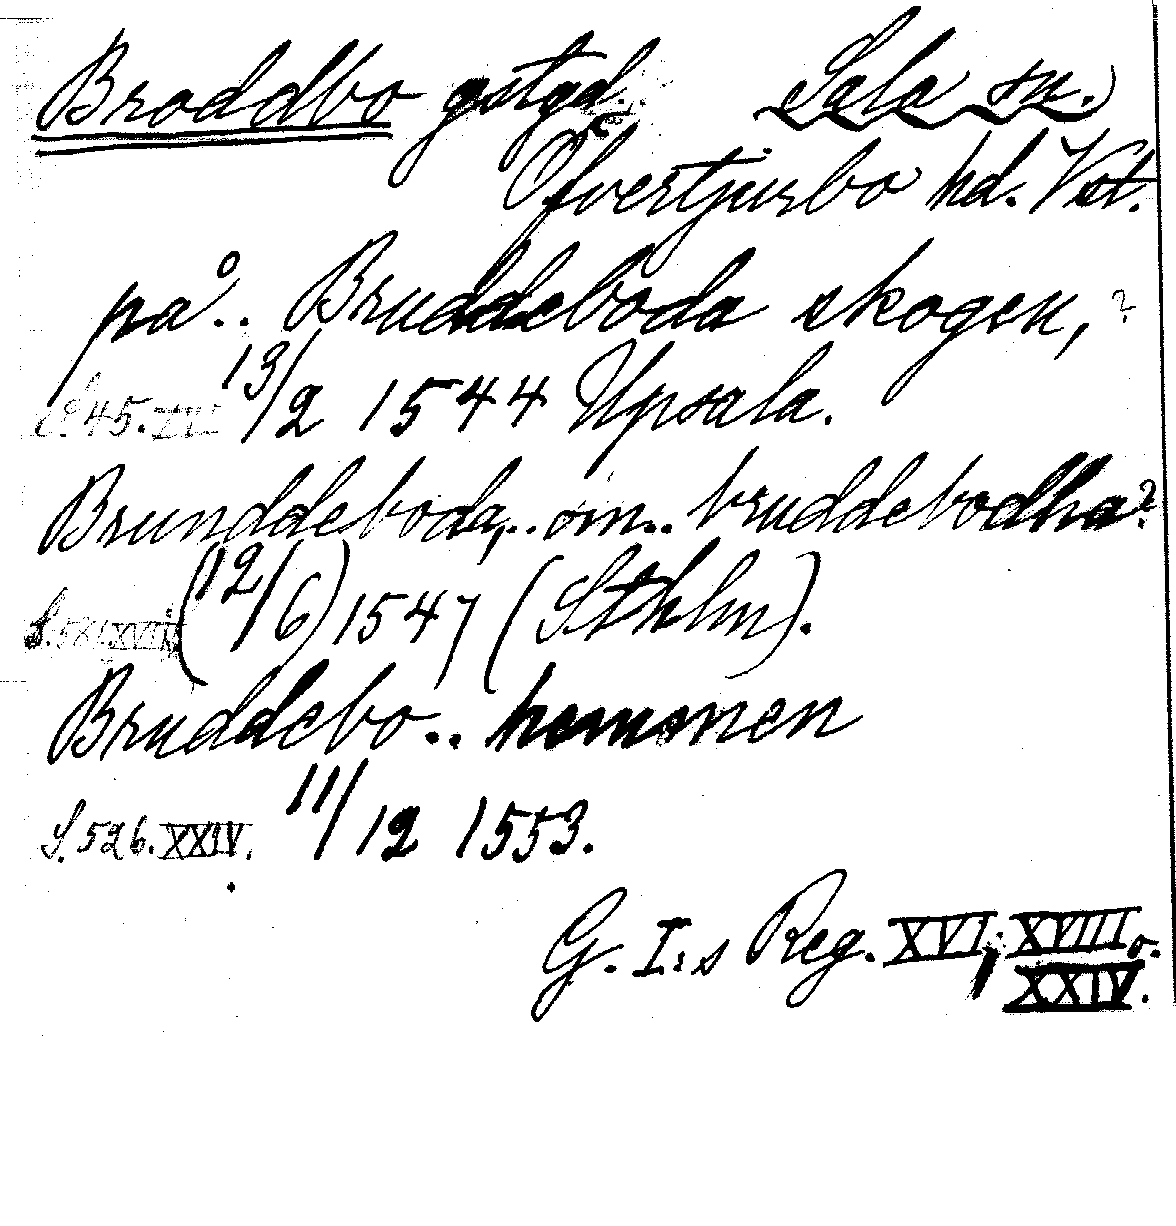 Broddbo gstgd. Sala sn.
Öfvertjurbo hd. Vst.
på.. Bruddeboda skogen, ?
S. 45. XVI 13/2 1544 Upsala.
Brunddeboda,.. om.. bruddebodha?
(12/6) 1547 (Sthlm).
Bruddebo.. hemmen
S. 526. XXIV. 11/12 1553.
G. I:s Reg. XVI, XVIII o.
XXIV.